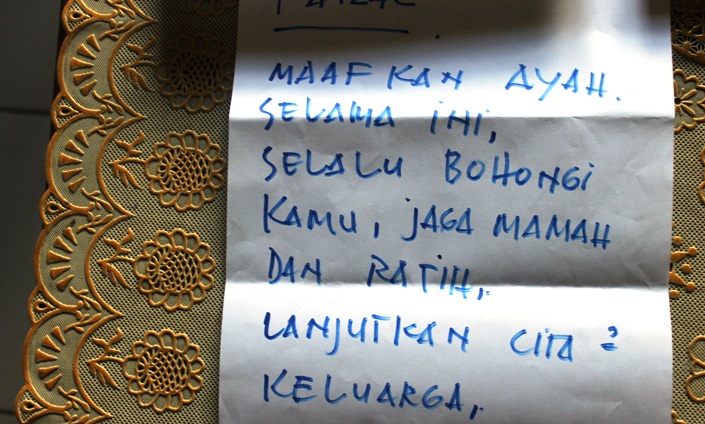 MAAFKAN AYAH.
SELAMA INI,
SELALU BOHONGI
KAMU, JAGA MAMAH
DAN RATIH,.
LANJUTKAN CITA2
KELUARGA,.